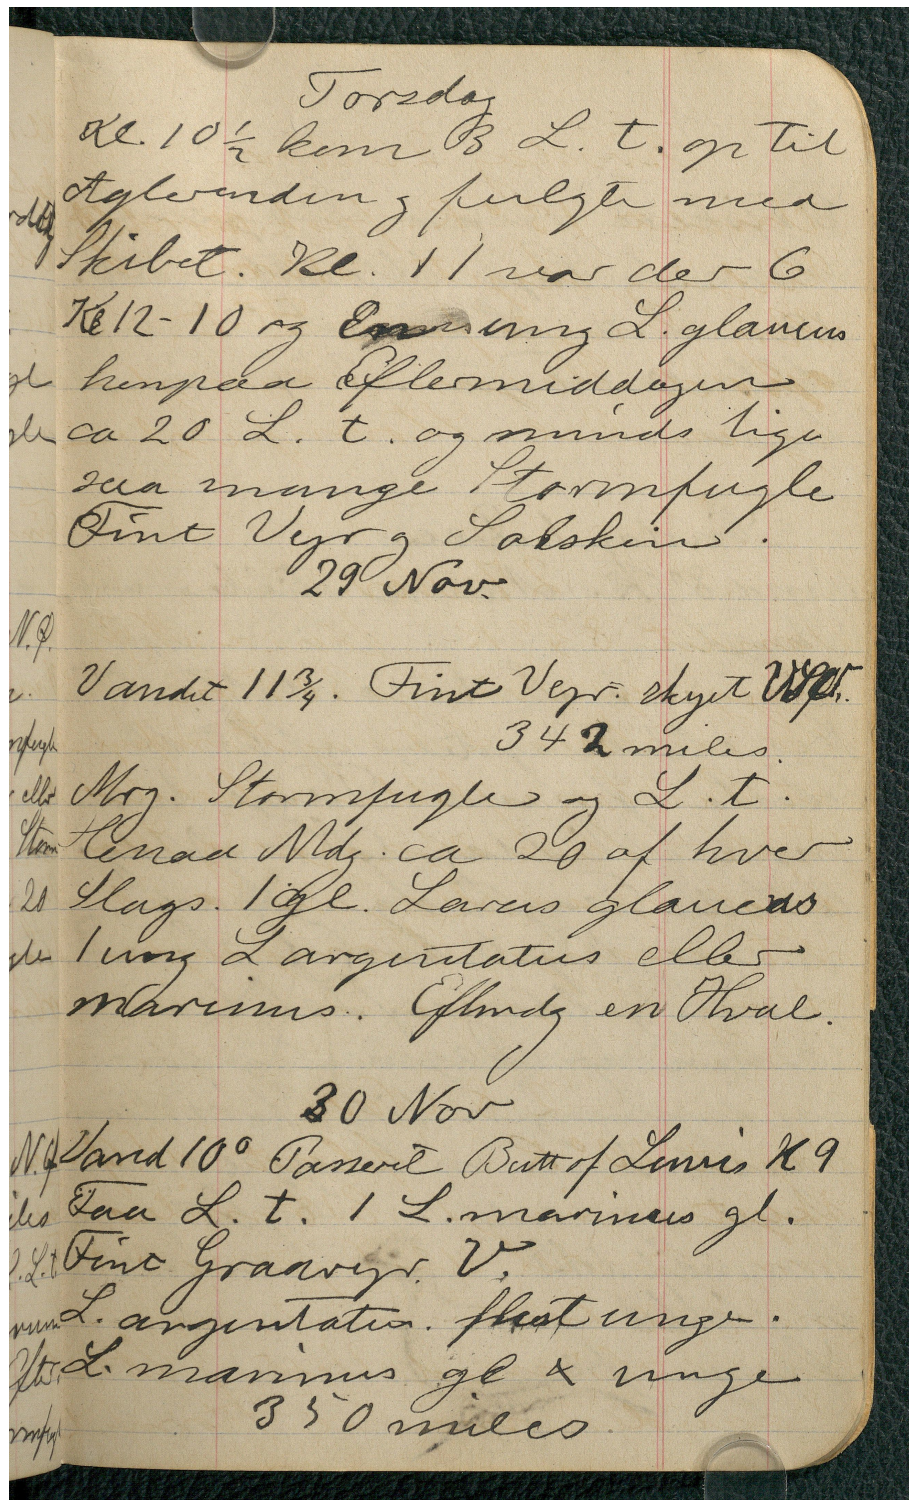 Torsdag
Kl. 10 1/2 kom B L. t. op til
Agterenden og fulgte med
Skibet. Kl. 11 var der 6
Kl 12 - 10 og En ung L. glaucus
henpaa Eftermiddagen
ca 20 L. t. og minds lige
saa mange Stormfugle
Fint Vejr og Solskin.
29 Nov.
Vandet 11 3/4. Fint Vejr. skyet
342 miles.
Mrg. Stormfugle og L. t.
Henad Mdg. ca 20 af hver
Slags. 1 gl. Larus glaucus
1 ung L argentatus eller
marinus. Eftmdg en Hval.
30 Nov
Vand 10° Passeret Butt of Lewis Kl 9
Faa L. t. 1 L. marinus gl.
Fint Graavejr. V.
L. argentatus. flest unge.
L. marinus gl & unge
350 miles